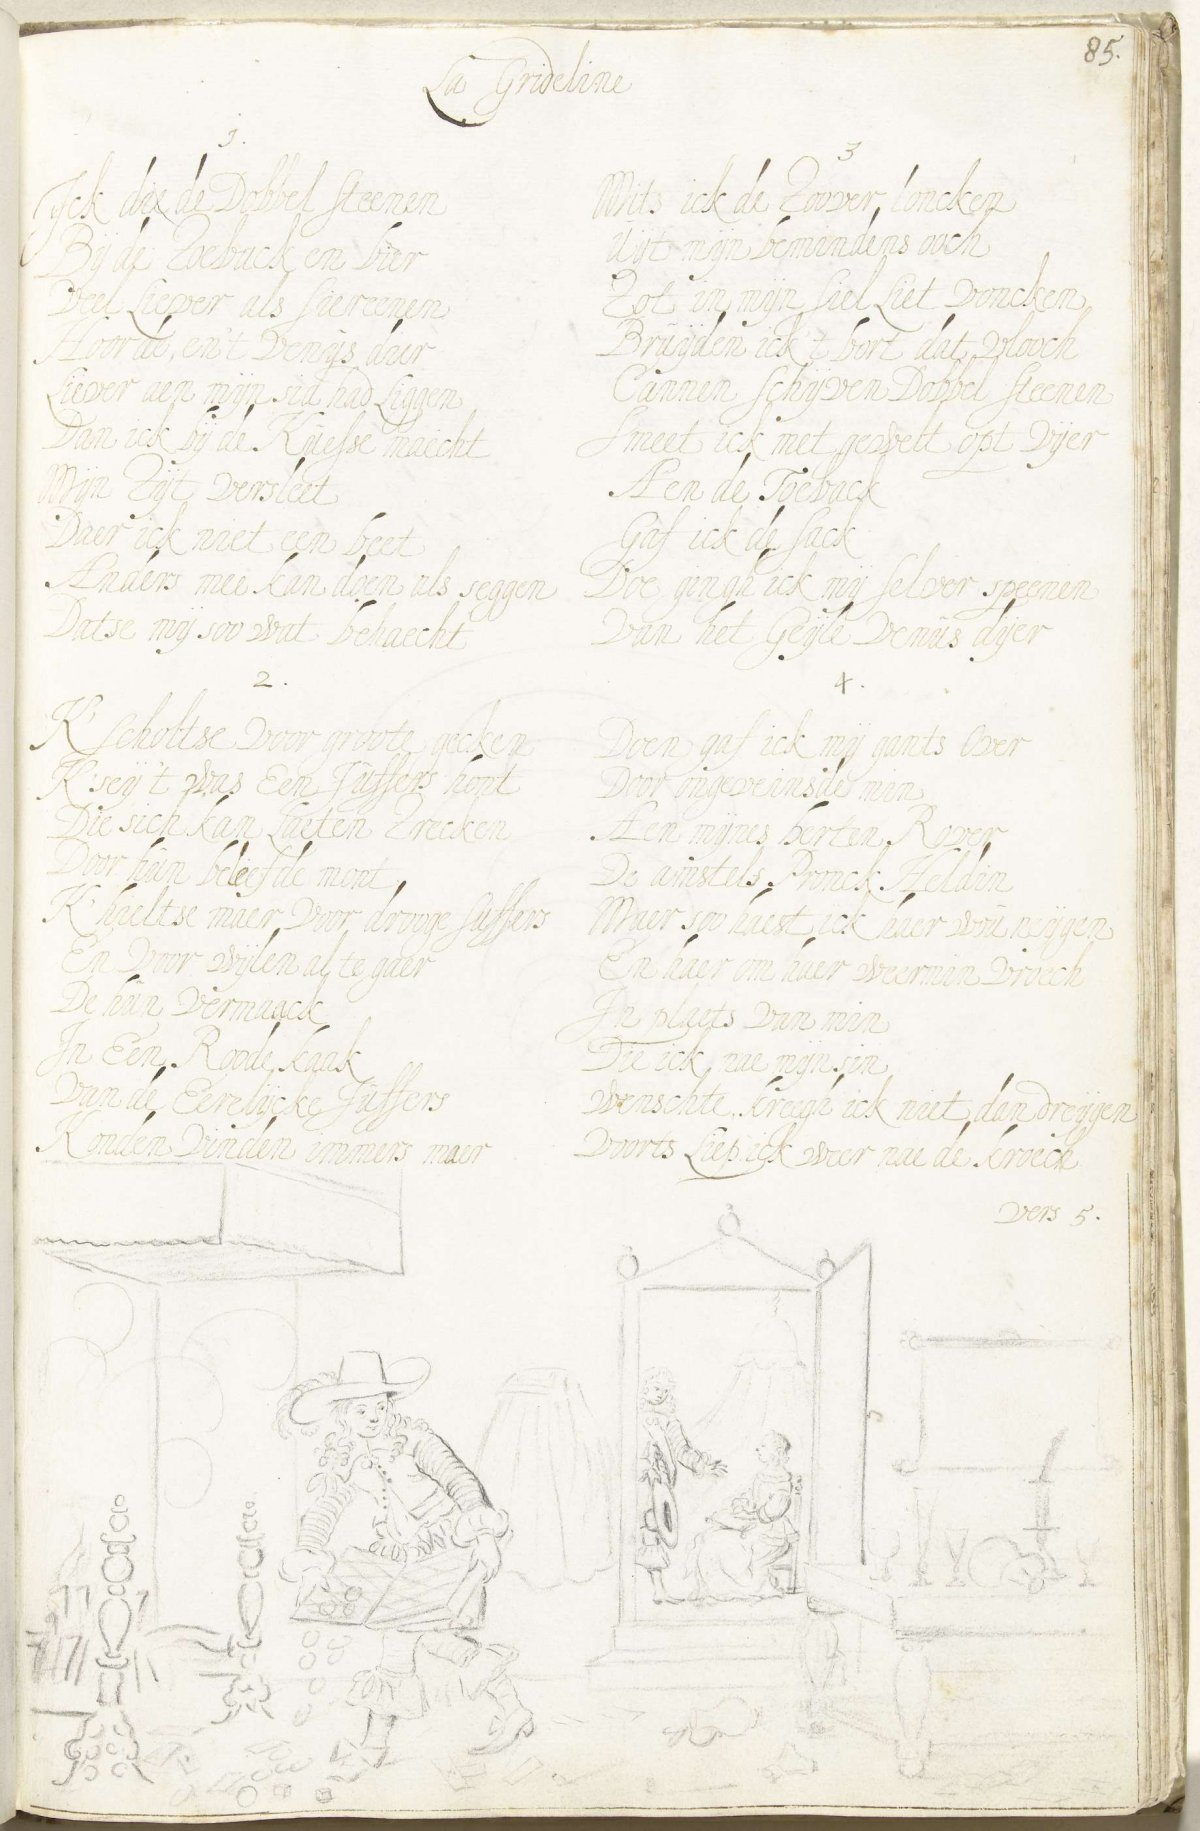 85.
La Grideline
1.
Ick die de Dobbel steenen
Bij de Toeback en bier
Veel Liever als siereenen
Hoorde, en't Venus dier
Liever aen mijn sid had Liggen
Dan ick bij de Kuesse maecht
Mijn Zijt versleet
Daer ick niet een beet
Anders mee kan doen als seggen
Datse mij soo wat behaecht
2.
K' scholtse voor groote gecken
K' seij 't was Een Juffers hont
Die sich kan Laeten Trecken
Door hun beleefde mont
K' hieltse maer voor drooge suffers
En voor wijlen al te gaer
De hun vermaack
In Een Roode kaak
Van de Eerelijcke Juffers
Konden vinden immers maer
3
Mits ick de Toover loncken
Uijt mijn bemindens ooch
Tot in mijn siel Liet voncken
Bruijden ick 't bort dat vlooch
Cannen schijven Dobbel steenen
Smeet ick met gewelt opt vijer
Aen de Toeback
Gaf ick de sack
Doe gingh ick mij selver speenen
Van het Geijle Venus dijer
4.
Doen gaf ick mij gants Over
Door ongeveinsde min
Aen mijnes herten Rover
De amstels Pronck Heldin
Maer soo haest ick haer wou neijgen
En haer om haer weermin vroech
In plaets van min
Die ick nae mijn sin
Wenschte, kreegh ick niet dan dreijgen
Voorts Liep ick weer nae de kroech
Vers 5.